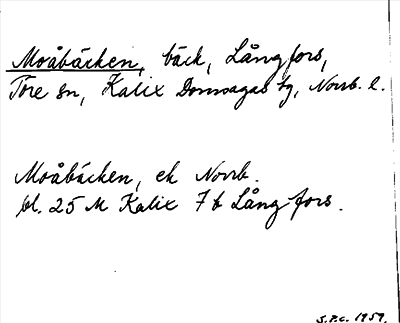 Moåbäcken, bäck, Långfors,
Töre sn, Kalix Domsagas tg, Norrb. l.
Moåbäcken, ek Norrb.
bl. 25 M Kalix 7 b Långfors.
S.P.C. 1959.